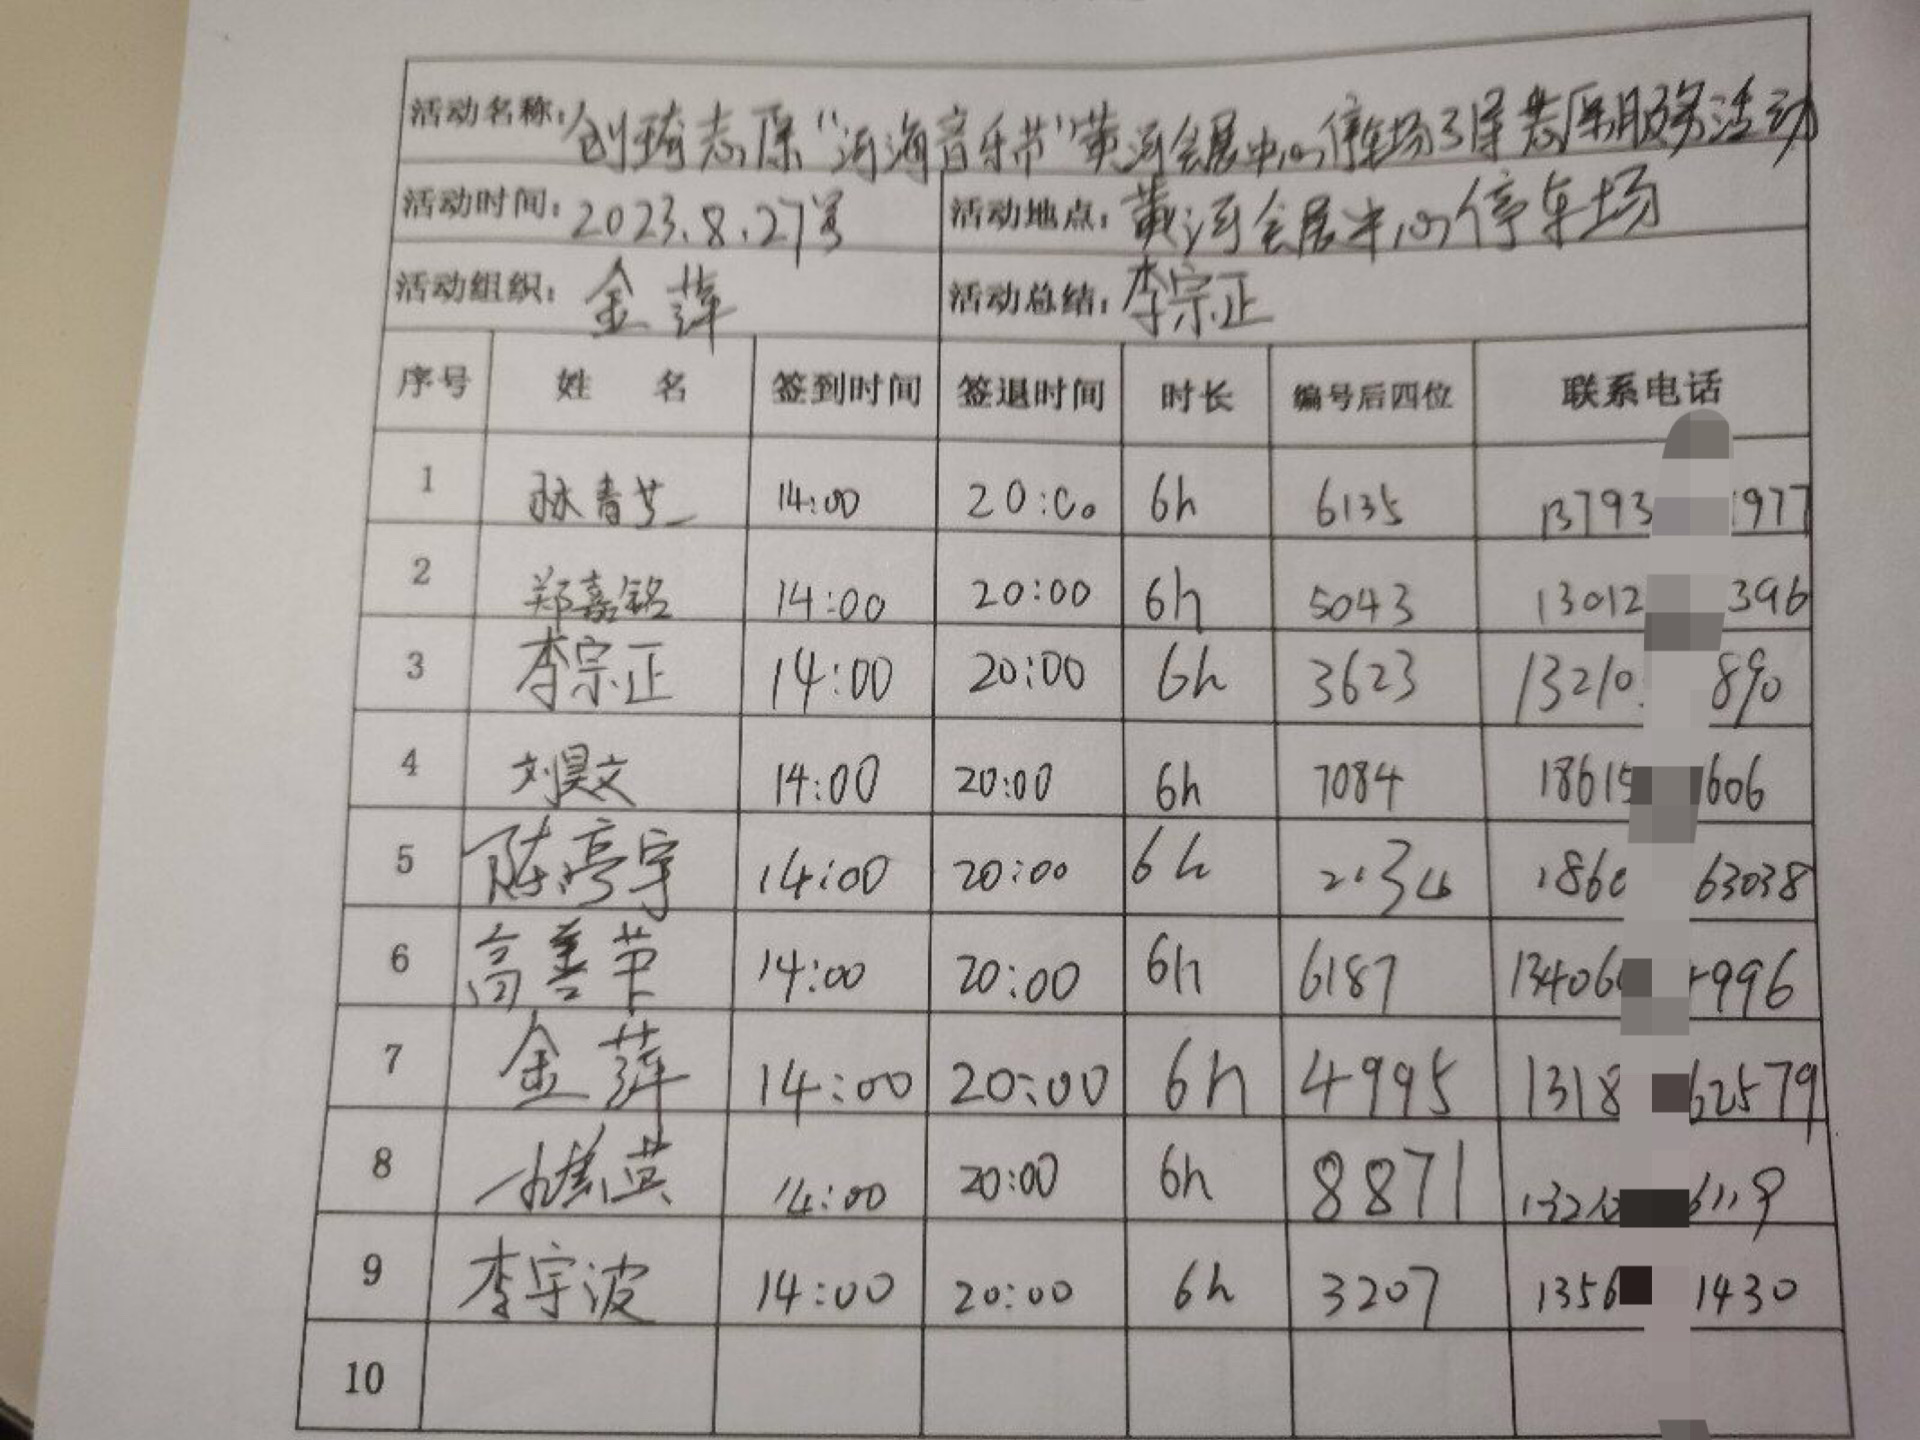 活动名称：创琦志愿“河海音乐节”黄河会展中心停车场 志愿服务活动
活动时间：2023.8.27号 活动地点：黄河会展中心停车场
活动组织：金萍 活动总结：李宗正
序号 姓 名 签到时间 签退时间 时长 编号后四位 联系电话
1 孙青芝 14:00 20:00 6h 6135 13793 977
2 郑嘉铭 14:00 20:00 6h 5043 13012 396
3 李宗正 14:00 20:00 6h 3623 13210 890
4 刘昊文 14:00 20:00 6h 7084 18615 606
5 陈亭宇 14:00 20:00 6h 2134 1860 63038
6 高善节 14:00 20:00 6h 6187 13406 996
7 金萍 14:00 20:00 6h 4995 1318 62579
8 14:00 20:00 6h 8871 6119
9 李宇波 14:00 20:00 6h 3207 1356 1430
10